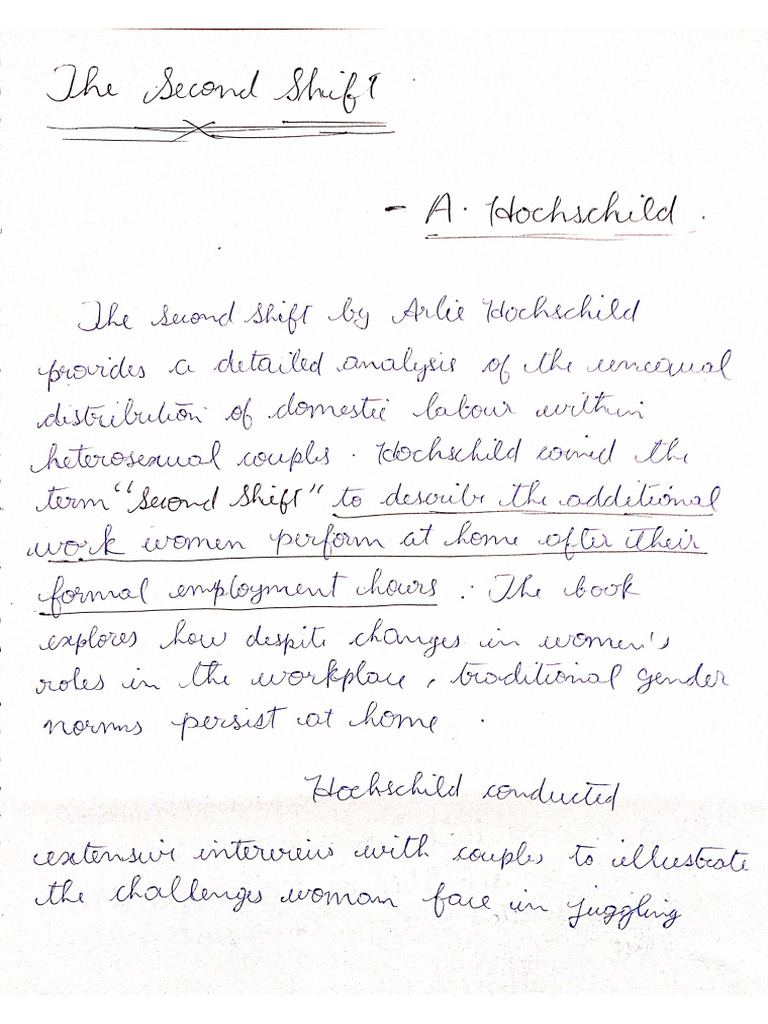 The Second Shift
- A. Hochschild.
The second shift by Arlie Hochschild
provides a detailed analysis of the unequal
distribution of domestic labour within
heterosexual couples. Hochschild coined the
term "Second Shift" to describe the additional
work women perform at home after their
formal employment hours. The book
explores how despite changes in women's
roles in the workplace, traditional gender
norms persist at home.
Hochschild conducted
extensive interviews with couples to illustrate
the challenges woman face in juggling